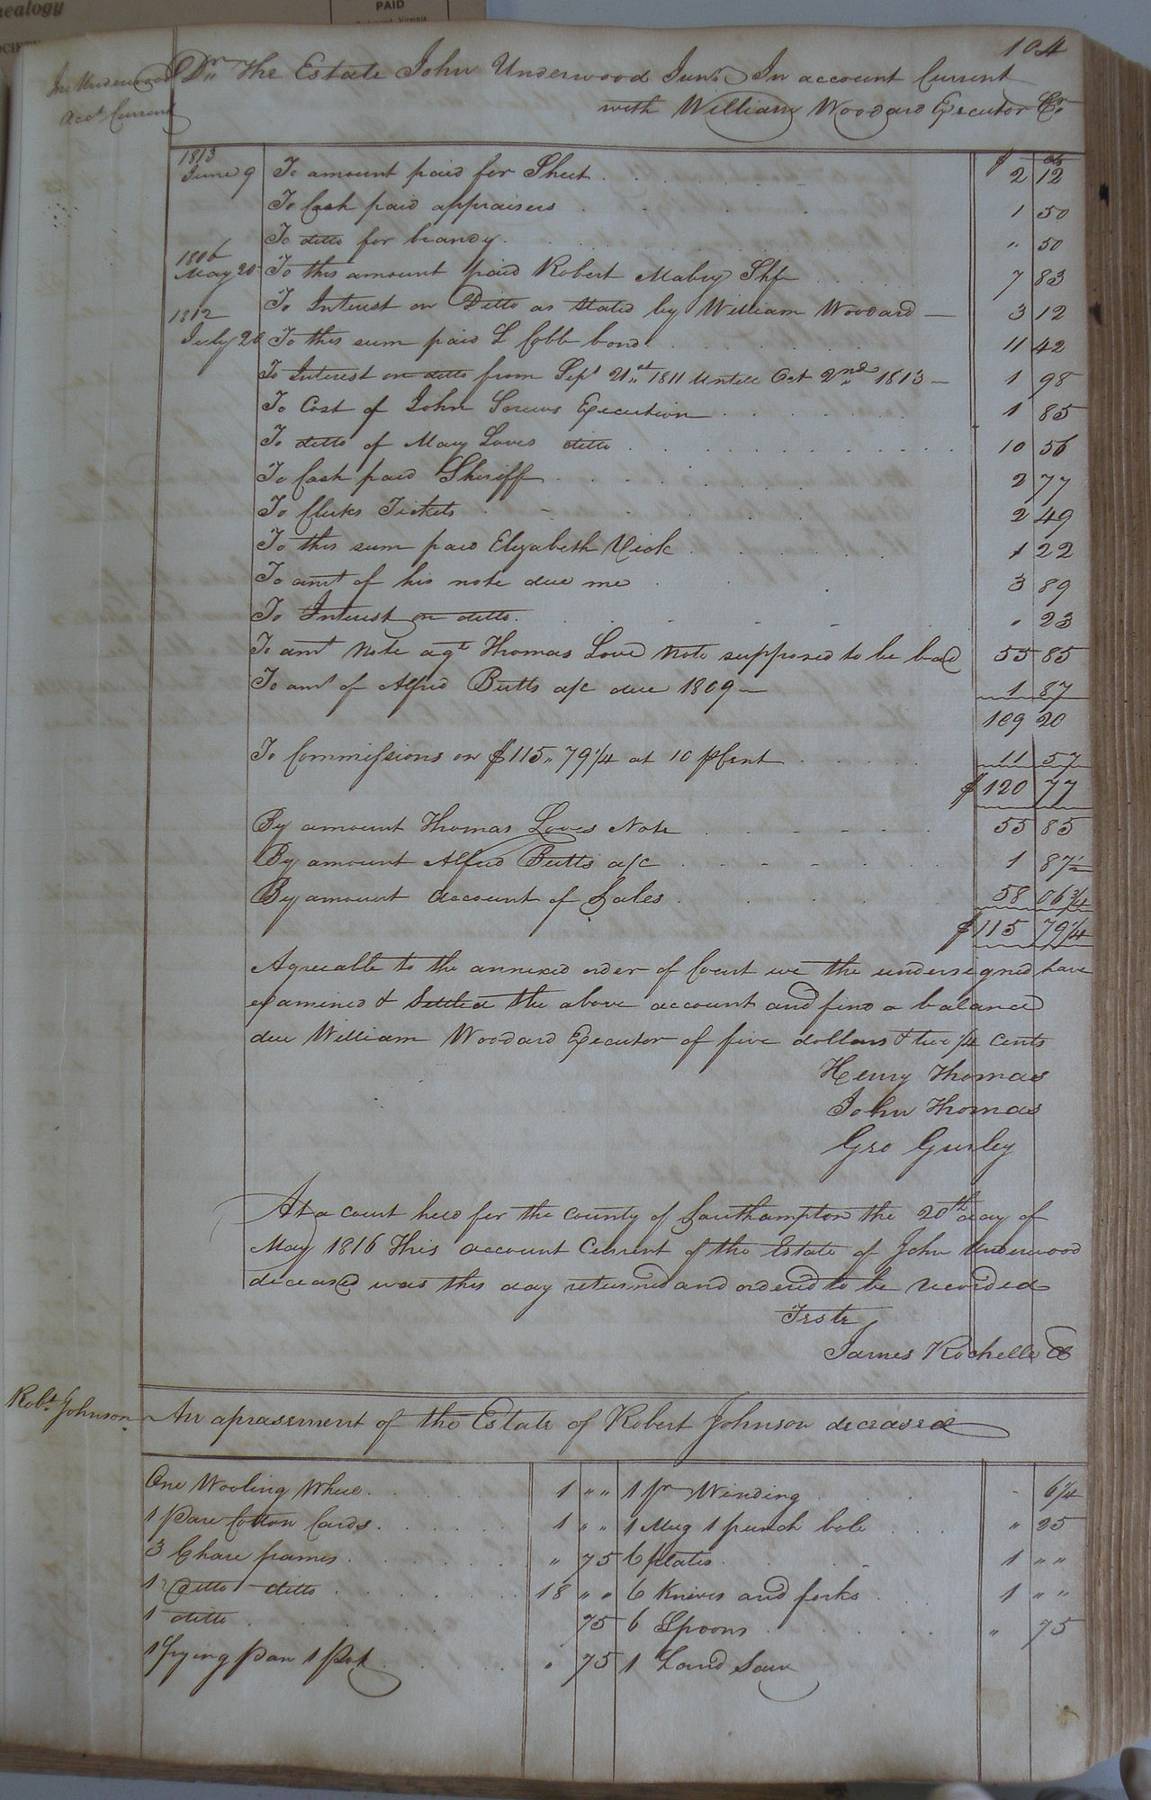 nealogy
PAID
104
Dr. The Estate John Underwood Junr In account Current
with William Woodard Executor Cr
Jno Underwood
Acct Current
$ cts
1813
June 9 To amount paid for Sheet 2 12
To Cash paid appraisers 1 50
To ditto for brandy " 50
1806
May 20 To this amount paid Robert Mabry Shff 7 83
To Interest on Ditto as stated by William Woodard 3 12
1812
July 20 To this sum paid L Cobb bond 11 42
To Interest on ditto from Sept 21st 1811 untill Oct 2nd 1813 1 98
To Cost of John Execution 1 85
To ditto of Mary Loves ditto 10 56
To Cash paid Sheriff 2 77
To Clerks Tickets 2 49
To this sum paid Elizabeth Vick 1 22
To amt of his note due me 3 89
To Interest on ditto " 23
To amt Note agt Thomas Love Note supposed to be bad 55 85
To amt of Alfred Butts a/c due 1809 1 87
109 20
To Commissions on $115,,79 1/4 at 10 pCent 11 57
$120 77
By amount Thomas Loves Note 55 85
By amount Alfred Butts a/c 1 87 1/2
By amount account of Sales 58 06 3/4
$115 79 1/4
Agreeable to the annexed order of Court we the undersigned have
examined & Settled the above account and find a balance
due William Woodard Executor of five dollars & two 1/4 cents
Henry Thomas
John Thomas
Geo Gurley
At a court held for the county of Southampton the 20th day of
May 1816 This account Current of the Estate of John Underwood
deceased was this day returned and ordered to be recorded
Teste
James Rochelle C
Robt Johnson
An aprasement of the Estate of Robert Johnson deceased
One Wooling Wheel 1 " " 1 pr Winding - 6 1/4
1 Pare Cotton Cards 1 " " 1 Mug 1 punch bole " 25
3 Chare frames " 75 6 plates 1 " "
1 ditto ditto 18 " " 6 Knives and forks 1 " "
1 ditto 75 6 Spoons " 75
1 frying Pan 1 Pot " 75 1 hand Saw